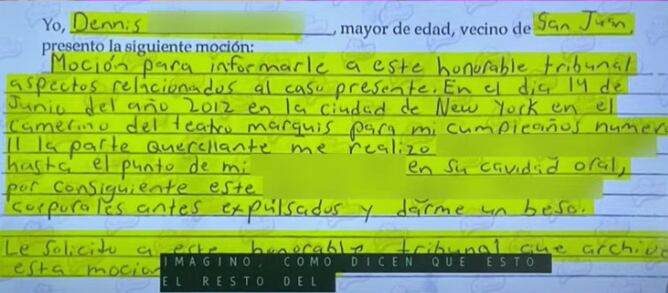 Yo, Dennis, mayor de edad, vecino de San Juan,
presento la siguiente moción:
Moción para informarle a este honorable tribunal
aspectos relacionados al caso presente. En el dia 14 de
Junio del año 2012 en la ciudad de New York en el
camerino del teatro marquis para mi cumpleaños numer
11 la parte querellante me realizo
hasta el punto de mi en su cavidad oral,
por consiguiente este
corporales antes expulsados y darme un beso.
Le solicito a este honorable tribunal que archiv
esta mocion
IMAGINO, COMO DICEN QUE ESTO
EL RESTO DEL